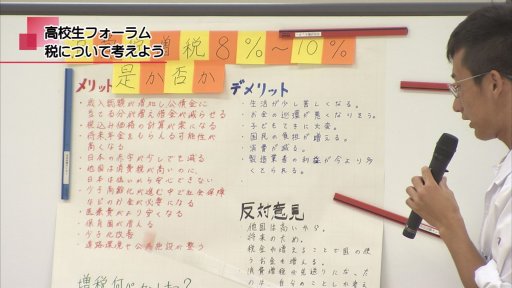 高校生フォーラム
税について考えよう
増税8%～10%
是か否か
メリット
・歳入総額が増加し公債金に
当てる分が増え借金が減らせる
・税込み価格の計算が楽になる
・将来年金をもらえる可能性が
高くなる
・日本の赤字が少しでも減る
・他国は消費税が高いのに
日本は低いから安心できない
・少子高齢化が進む中で社会保障
などのお金が必要になる
・医療費がより安くなる
・保育園が増える
・少子化改善
・道路環境や公共施設が整う
デメリット
・生活が少し苦しくなる。
・お金の循環が悪くなりそう。
・子どもできに大変。
・国民の負担が増える。
・消費が減る。
・製造業者の利益が今より少
なくとられる。
反対意見
他国は高いから。
将来のため。
税金を増えることで国の使
うお金も増える。
消費増税が見送りになった
のは、自分のことしか考え
増税何